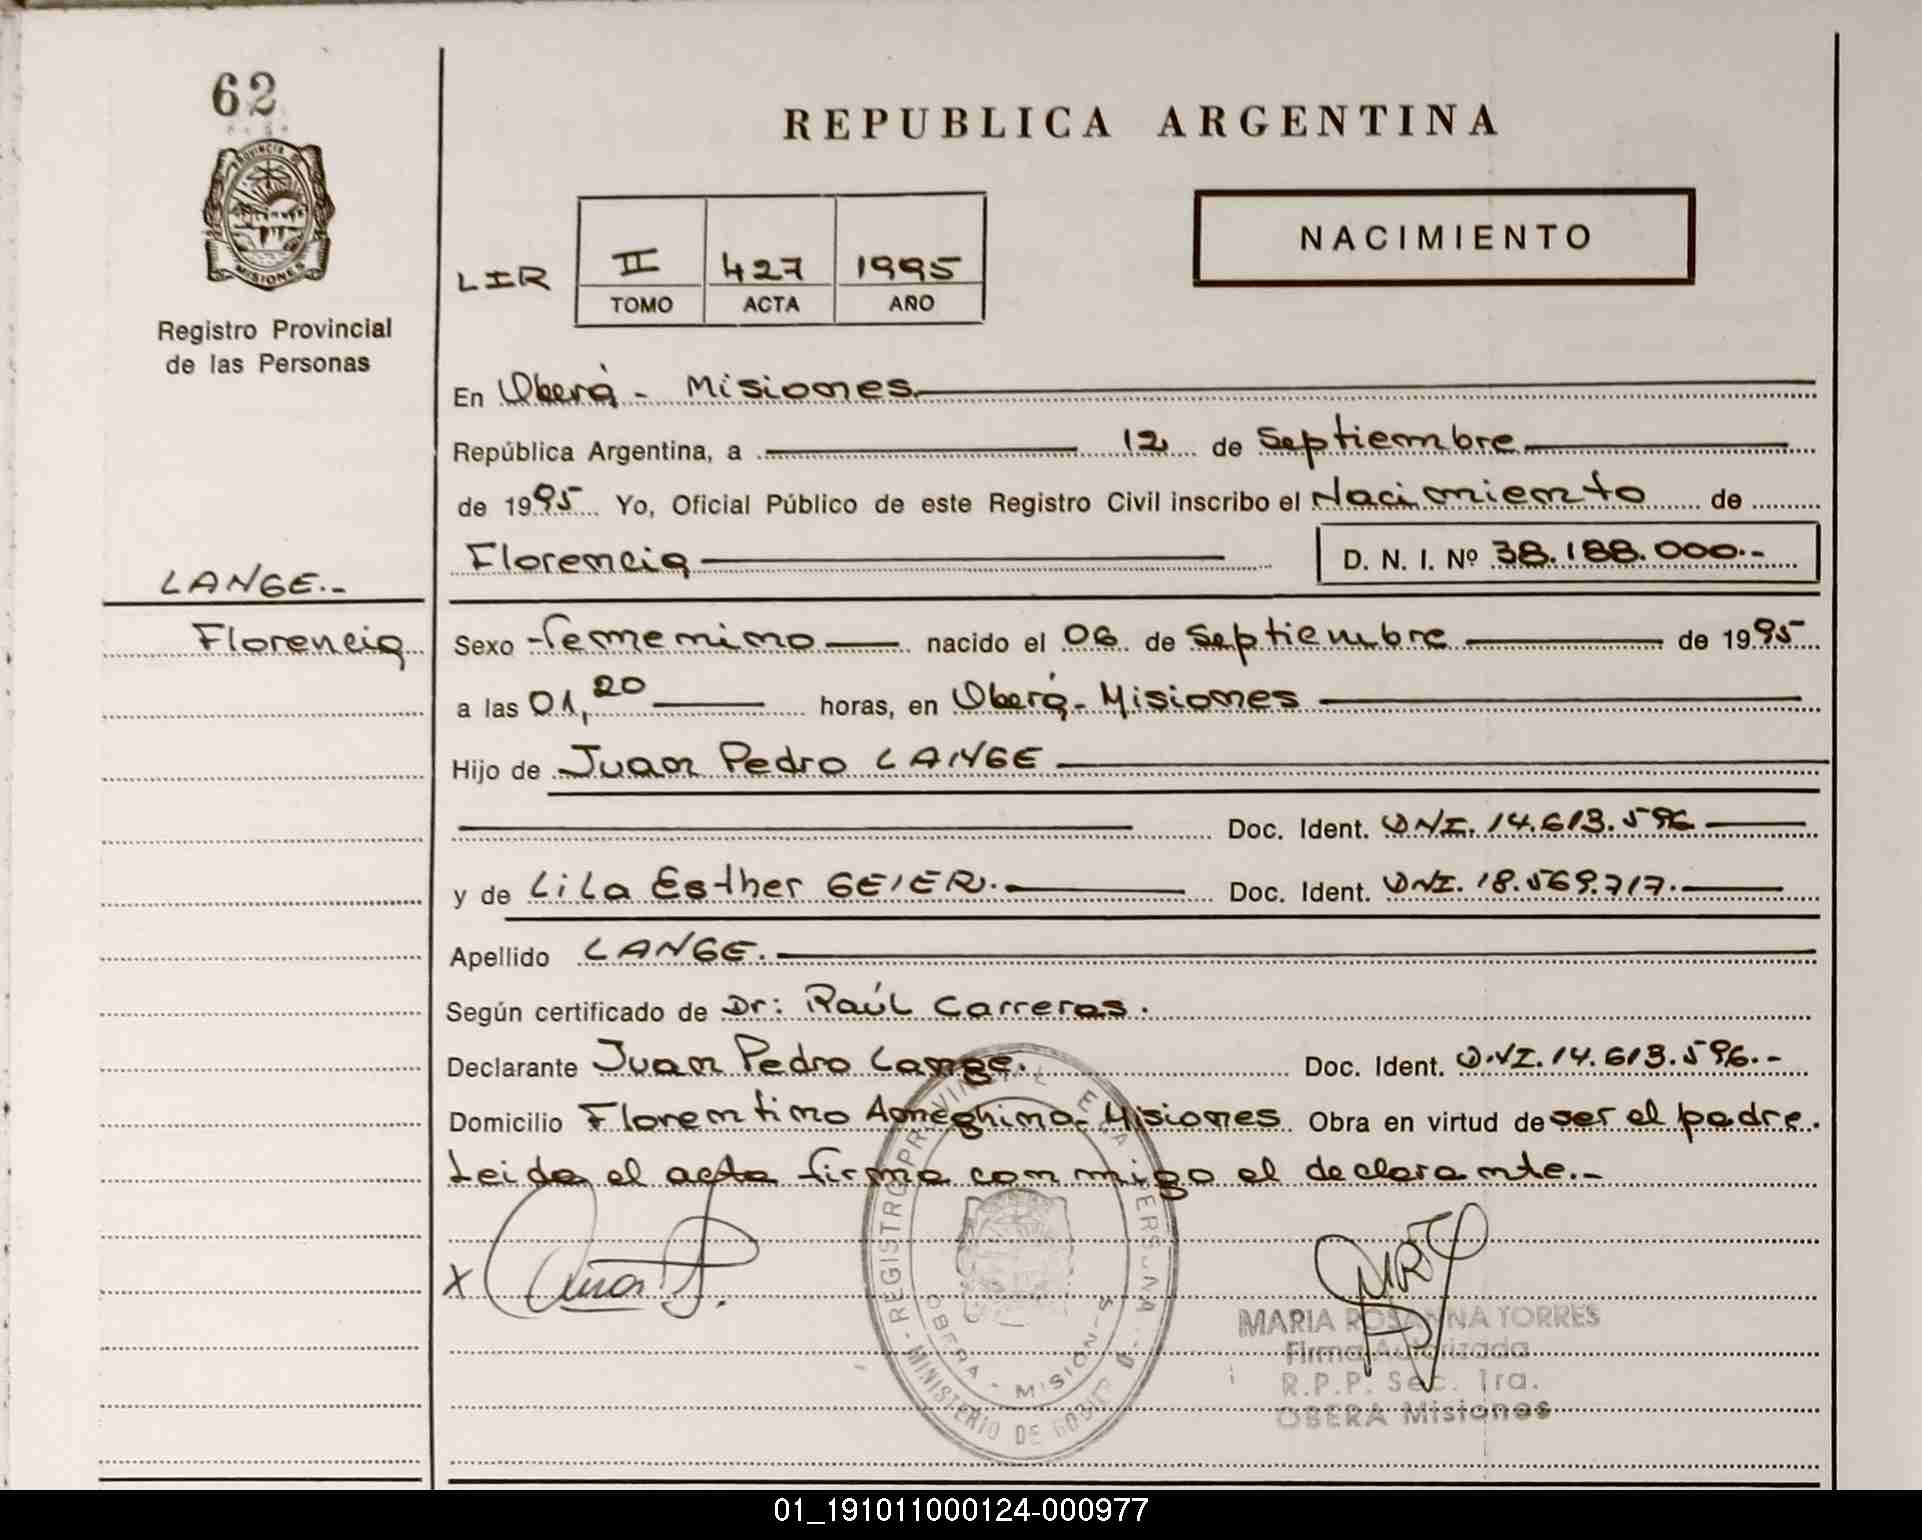 62
PROVINCIA DE
MISIONES
Registro Provincial
de las Personas
REPUBLICA ARGENTINA
NACIMIENTO
LIR II 427 1995
TOMO ACTA AÑO
En Oberá - Misiones
República Argentina, a 12 de Septiembre
de 1995 Yo, Oficial Público de este Registro Civil inscribo el Nacimiento de
Florencia D. N. I. Nº 38.188.000.-
LANGE.-
Florencia
Sexo femenino nacido el 06 de Septiembre de 1995
a las 01,20 horas, en Oberá - Misiones
Hijo de Juan Pedro LANGE
Doc. Ident. DNI. 14.613.596
y de Lila Esther GEIER. Doc. Ident. DNI. 18.569.717.
Apellido LANGE.
Según certificado de Dr: Raúl Carreras.
Declarante Juan Pedro Lange. Doc. Ident. DNI. 14.613.596.-
Domicilio Florentino Ameghino - Misiones Obra en virtud de ser el padre.
Leida el acta firma conmigo el declarante.-
X
REGISTRO PROVINCIAL DE LAS PERSONAS
OBERA - MISIONES
MINISTERIO DE GOBIERNO
MARIA ROSANNA TORRES
Firma Autorizada
R.P.P. Sec. 1ra.
OBERA Misiones
01_191011000124-000977